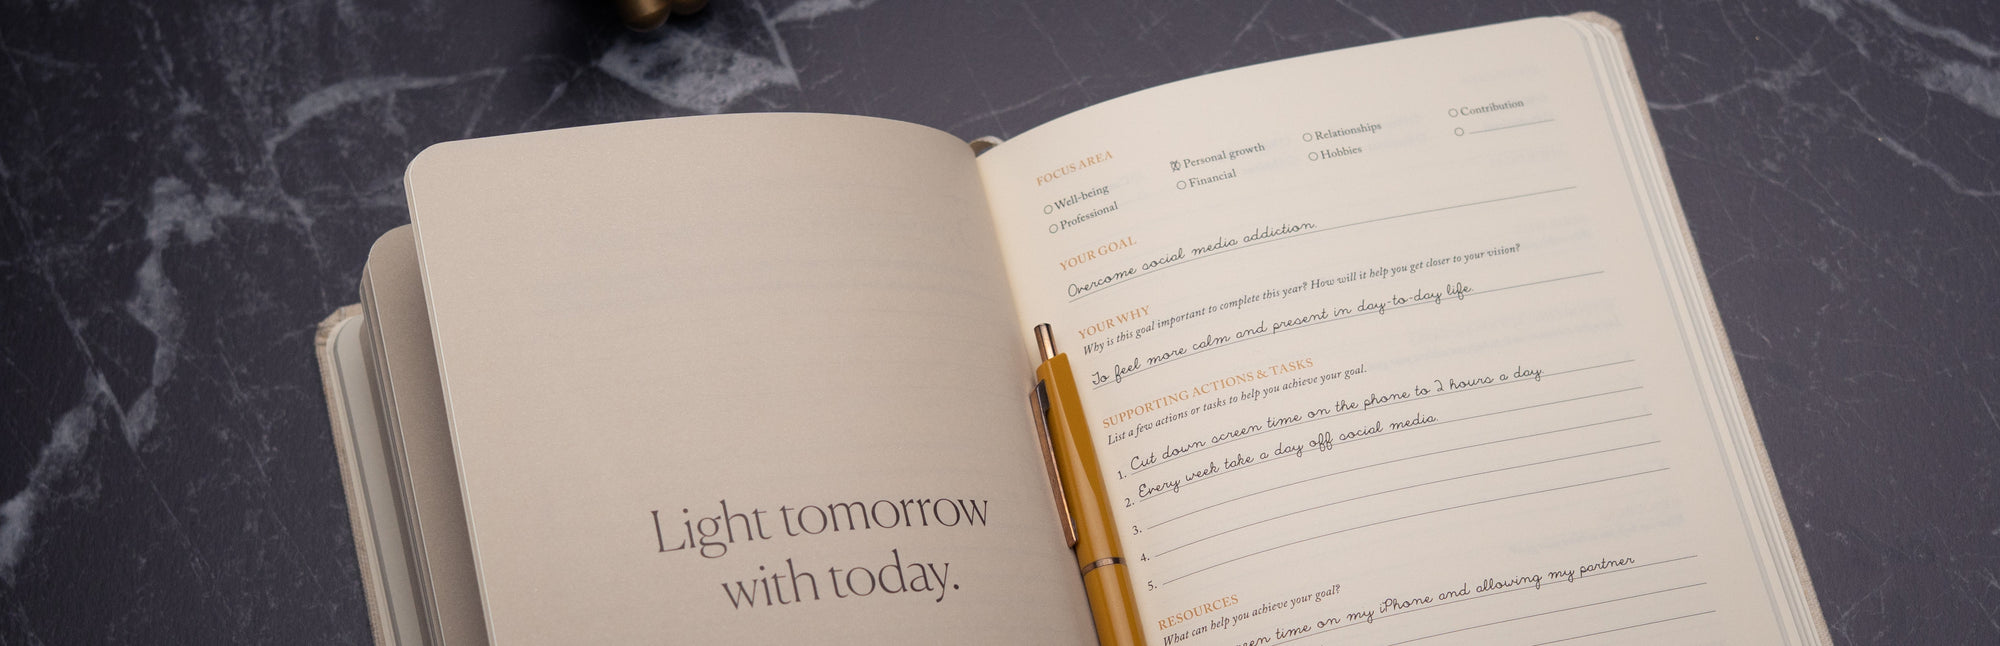 Light tomorrow
with today.
FOCUS AREA
Well-being
Personal growth
Relationships
Contribution
Professional
Financial
Hobbies
YOUR GOAL
Overcome social media addiction.
YOUR WHY
Why is this goal important to complete this year? How will it help you get closer to your vision?
To feel more calm and present in day-to-day life.
SUPPORTING ACTIONS & TASKS
List a few actions or tasks to help you achieve your goal.
1. Cut down screen time on the phone to 2 hours a day.
2. Every week take a day off social media.
3.
4.
5.
RESOURCES
What can help you achieve your goal?
time on my iPhone and allowing my partner